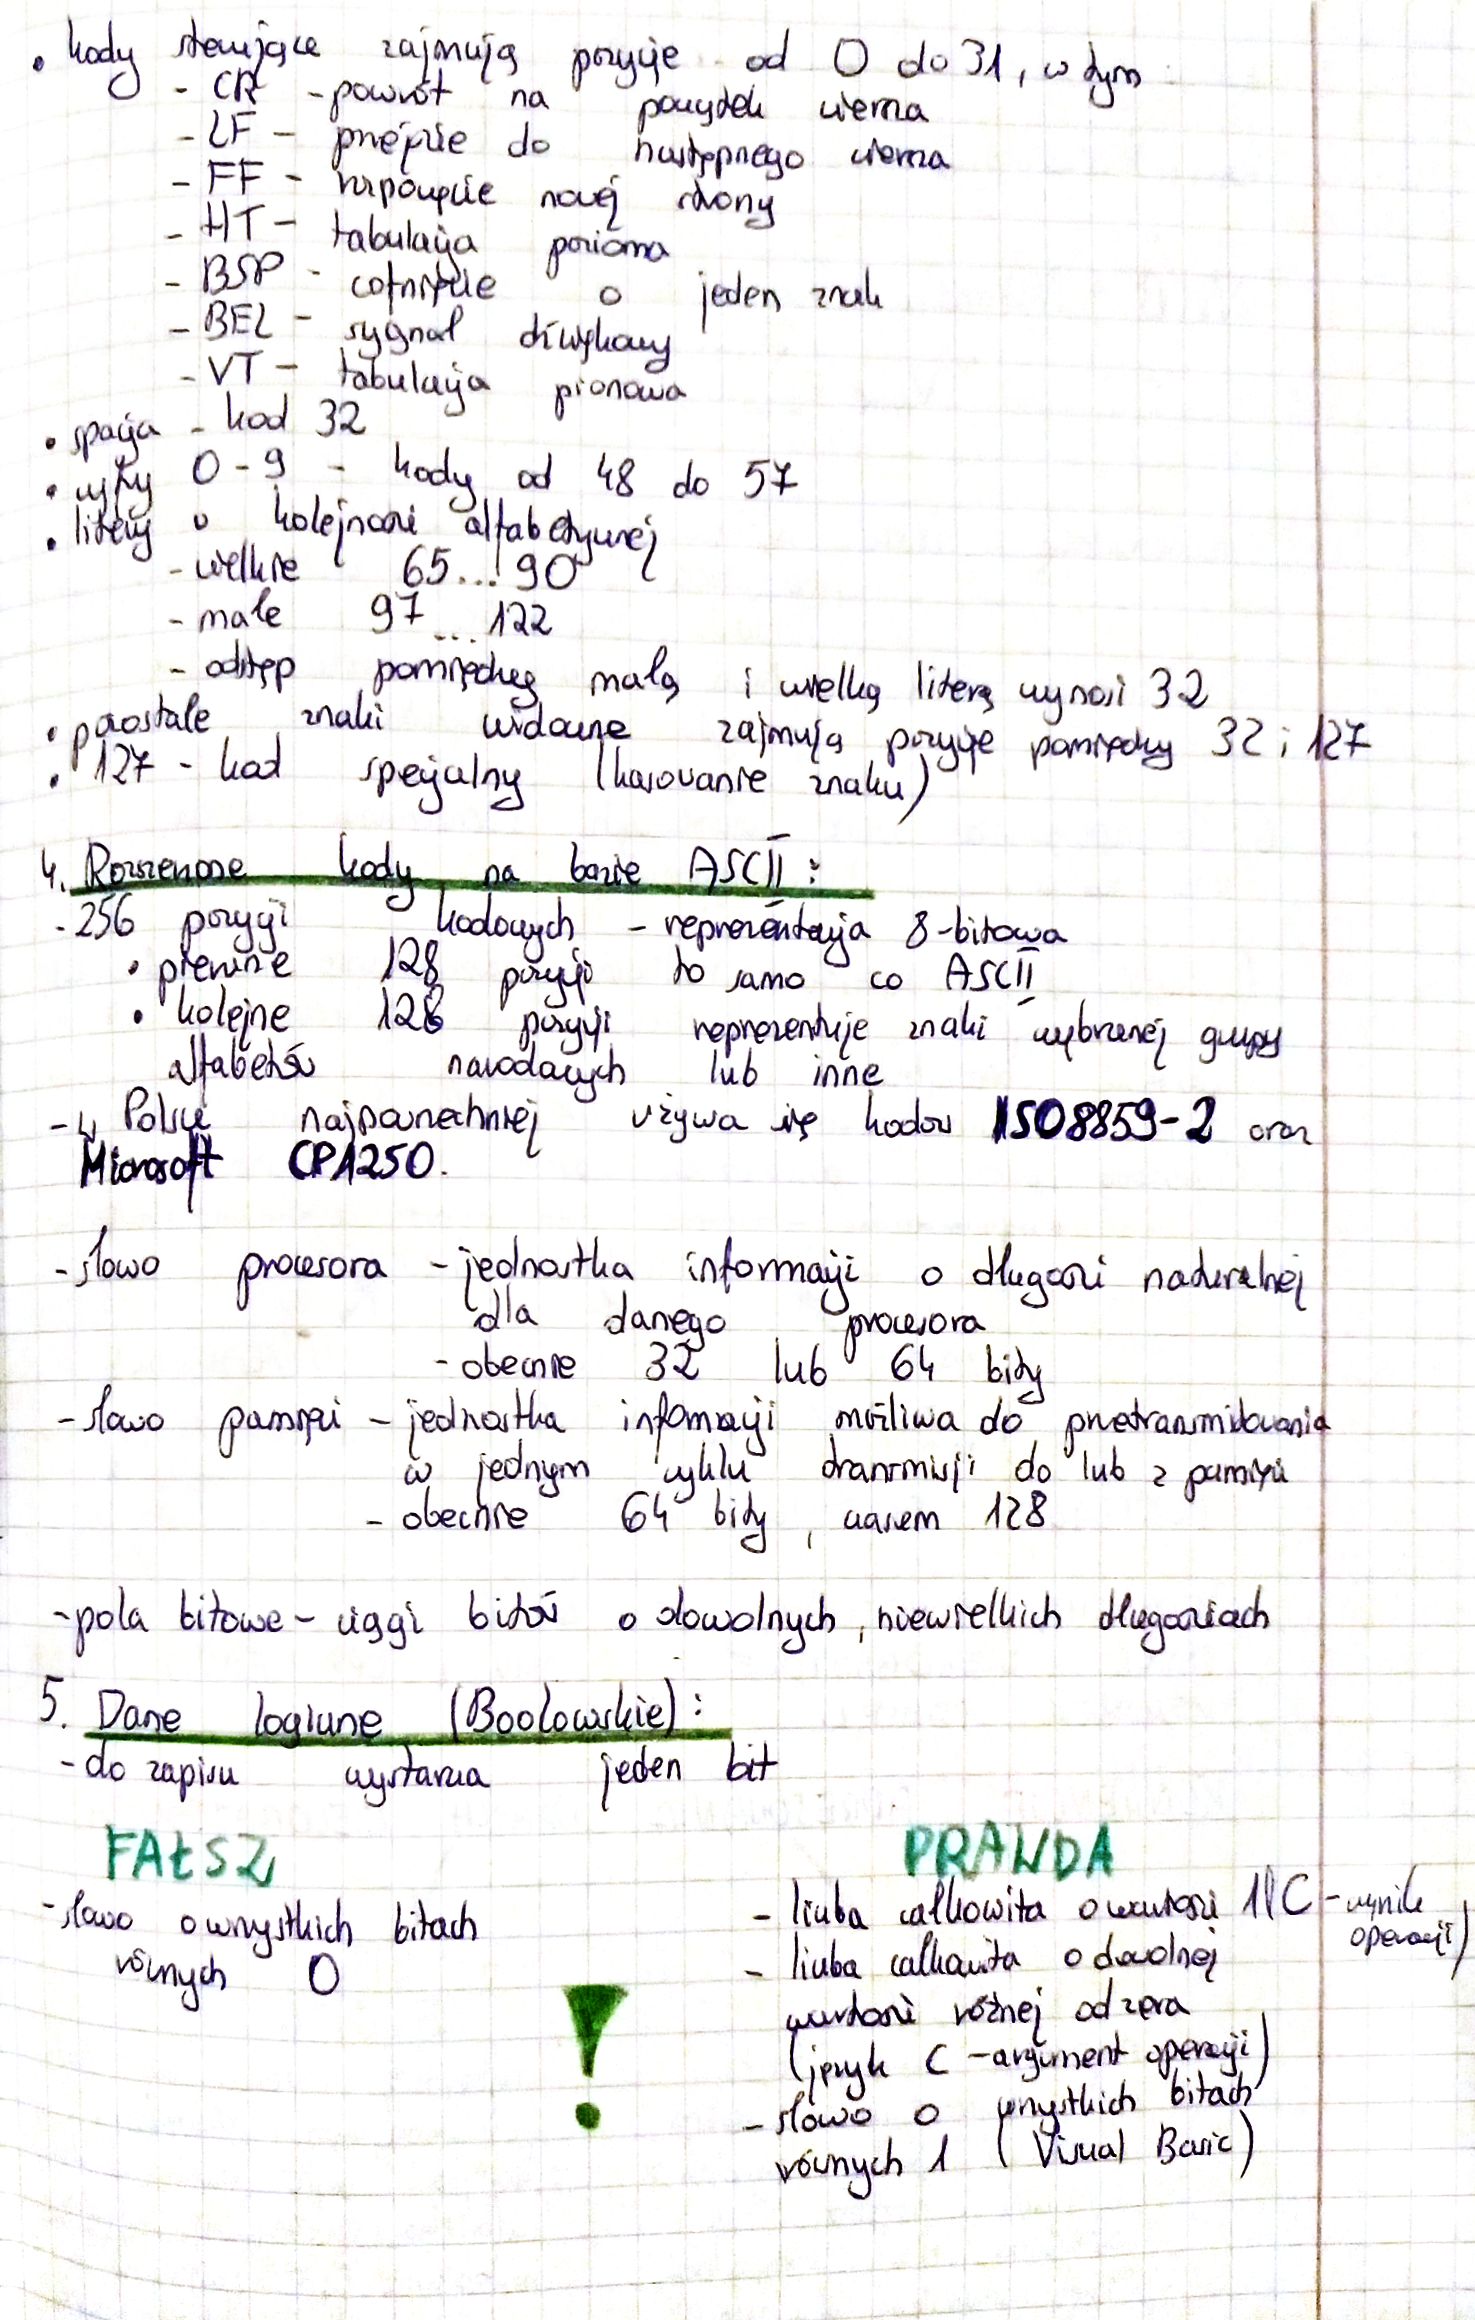 • kody sterujące zajmują pozycje od 0 do 31, w tym
- CR - powrót na początek wiersza
- LF - przejście do następnego wiersza
- FF - rozpoczęcie nowej strony
- HT - tabulacja pozioma
- BSP - cofnięcie o jeden znak
- BEL - sygnał dźwiękowy
- VT - tabulacja pionowa
• spacja - kod 32
• cyfry 0-9 - kody od 48 do 57
• litery w kolejności alfabetycznej
- wielkie 65...90
- małe 97...122
- odstęp pomiędzy małą i wielką literą wynosi 32
• pozostałe znaki widoczne zajmują pozycje pomiędzy 32 i 127
• 127 - kod specjalny (kasowanie znaku)
4. Rozszerzone kody na bazie ASCII:
- 256 pozycji kodowych - reprezentacja 8-bitowa
• pierwsze 128 pozycji to samo co ASCII
• kolejne 128 pozycji reprezentuje znaki wybranej grupy
alfabetów narodowych lub inne
- w Polsce najpowszechniej używa się kodów ISO8859-2 oraz
Microsoft CP1250.
- słowo procesora - jednostka informacji o długości naturalnej
dla danego procesora
- obecnie 32 lub 64 bity
- słowo pamięci - jednostka informacji możliwa do przetransmitowania
w jednym cyklu transmisji do lub z pamięci
- obecnie 64 bity, czasem 128
- pola bitowe - ciągi bitów o dowolnych, niewielkich długościach
5. Dane logiczne (Boolowskie):
- do zapisu wystarcza jeden bit
FAŁSZ
- słowo o wszystkich bitach
równych 0
!
PRAWDA
- liczba całkowita o wartości 1 (C - wynik
operacji)
- liczba całkowita o dowolnej
wartości różnej od zera
(język C - argument operacji)
- słowo o wszystkich bitach
równych 1 (Visual Basic)